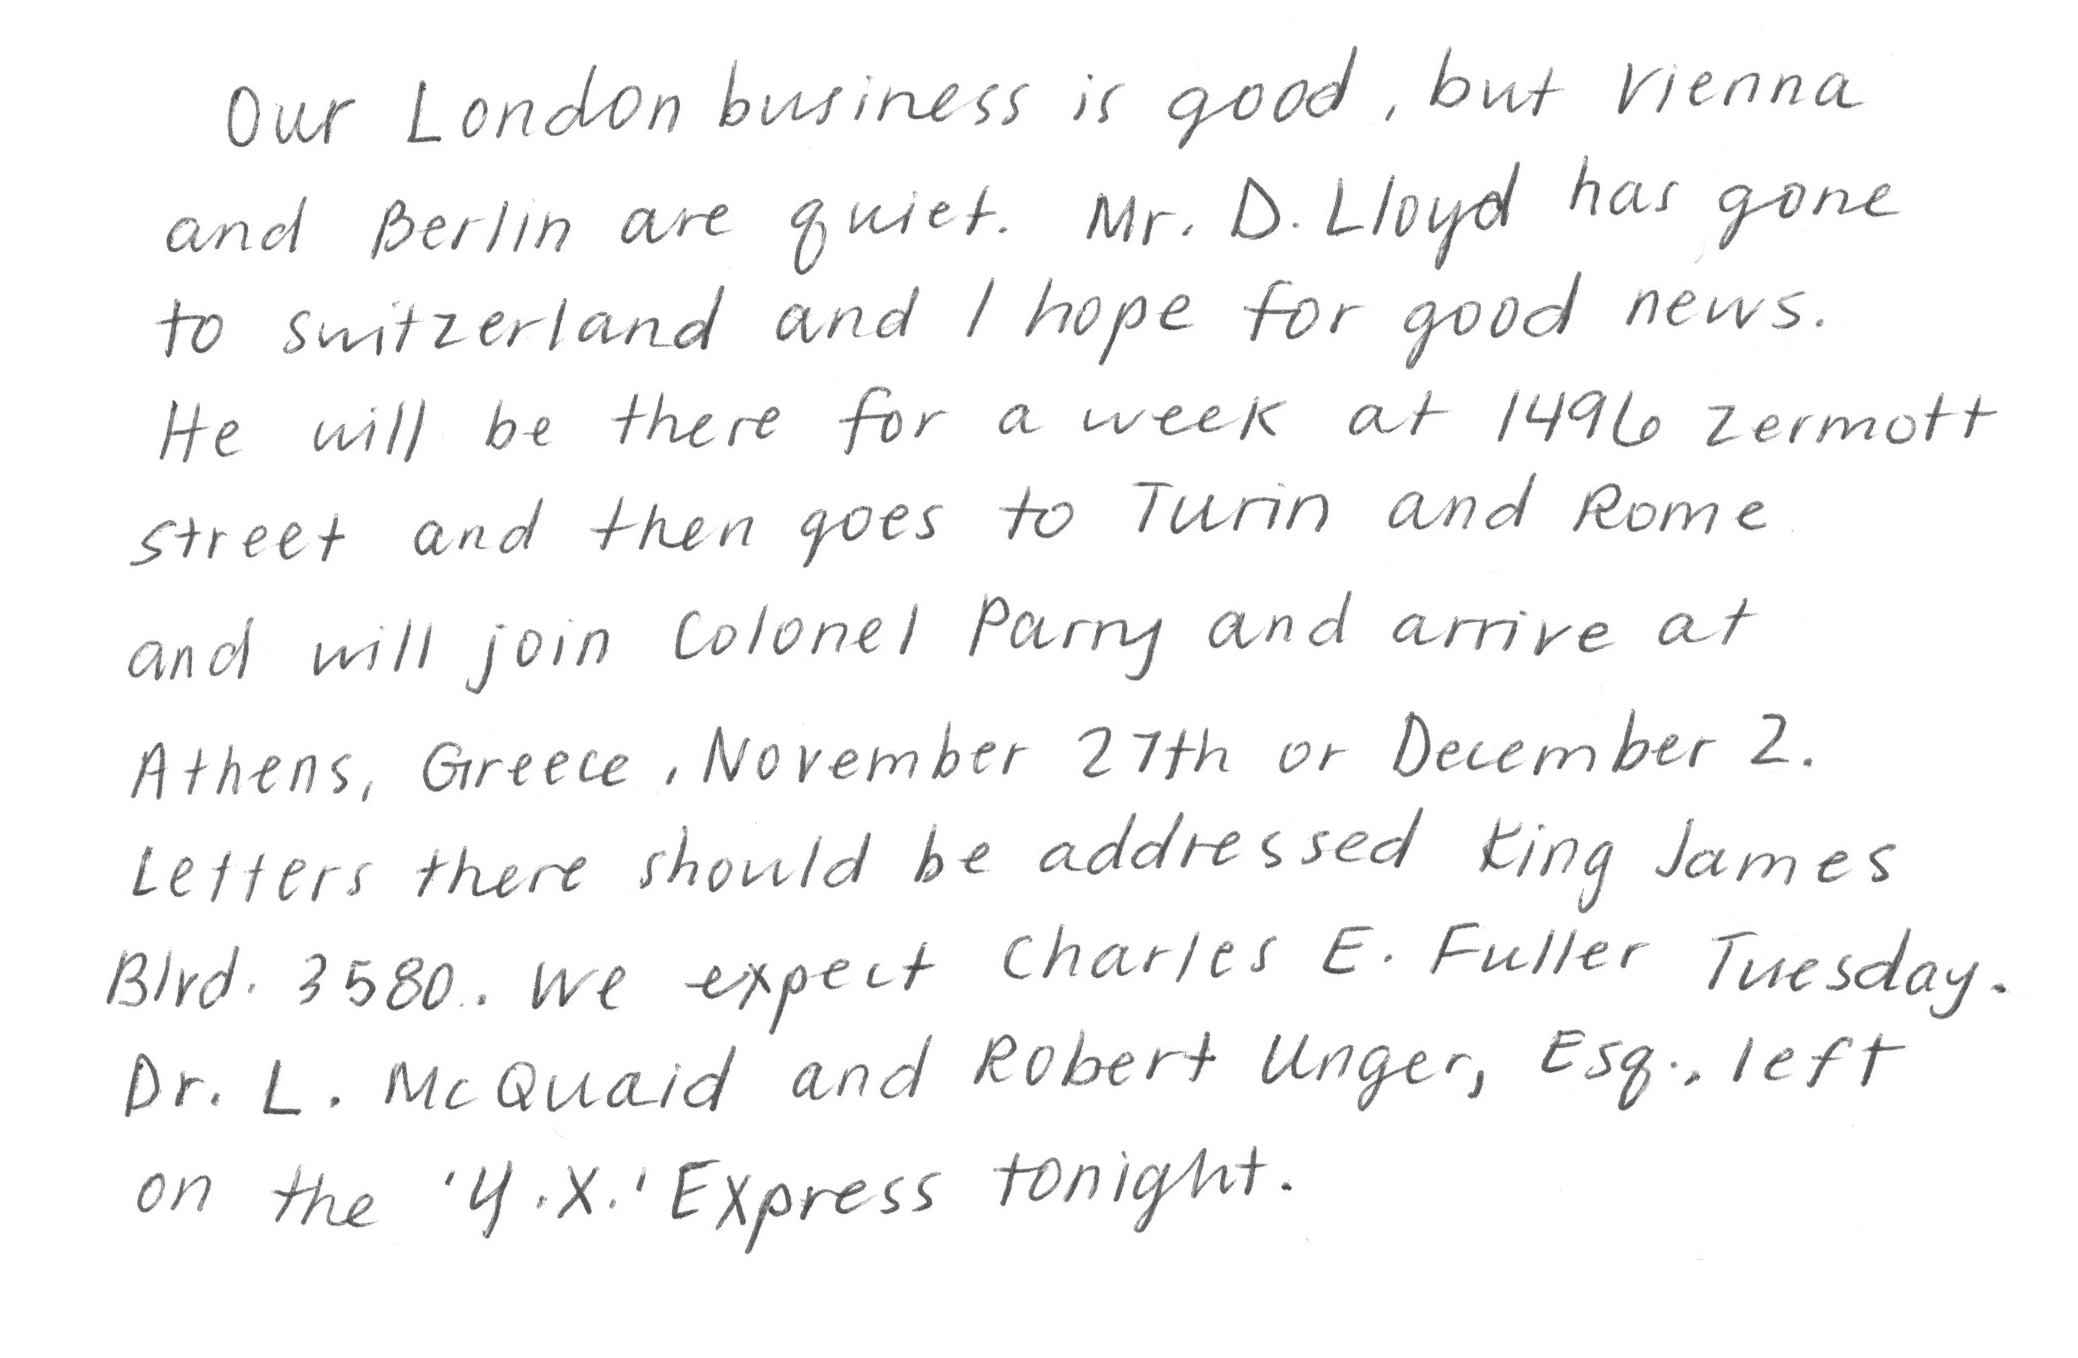 Our London business is good, but Vienna
and Berlin are quiet. Mr. D. Lloyd has gone
to Switzerland and I hope for good news.
He will be there for a week at 1496 Zermott
street and then goes to Turin and Rome
and will join Colonel Parry and arrive at
Athens, Greece, November 27th or December 2.
Letters there should be addressed King James
Blvd. 3580. We expect Charles E. Fuller Tuesday.
Dr. L. McQuaid and Robert Unger, Esq., left
on the 'Y.X.' Express tonight.